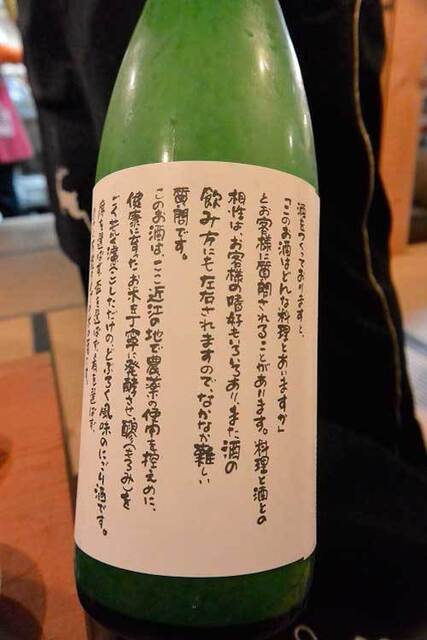 酒をつくっておりますと、
「このお酒はどんな料理とあいますか」
とお客様に質問されることがあります。料理と酒との
相性は、お客様の嗜好もいろいろあり、また酒の
飲み方にも左右されますので、なかなか難しい
質問です。
このお酒は、ここ近江の地で農薬の使用を控えめに、
健康に育ったお米を丁寧に発酵させ、醪(もろみ)を
ごく荒く濾こしただけの、どぶろく風味のにごり酒です。
席を選ばず、杯を選ばず、肴を選ばず、